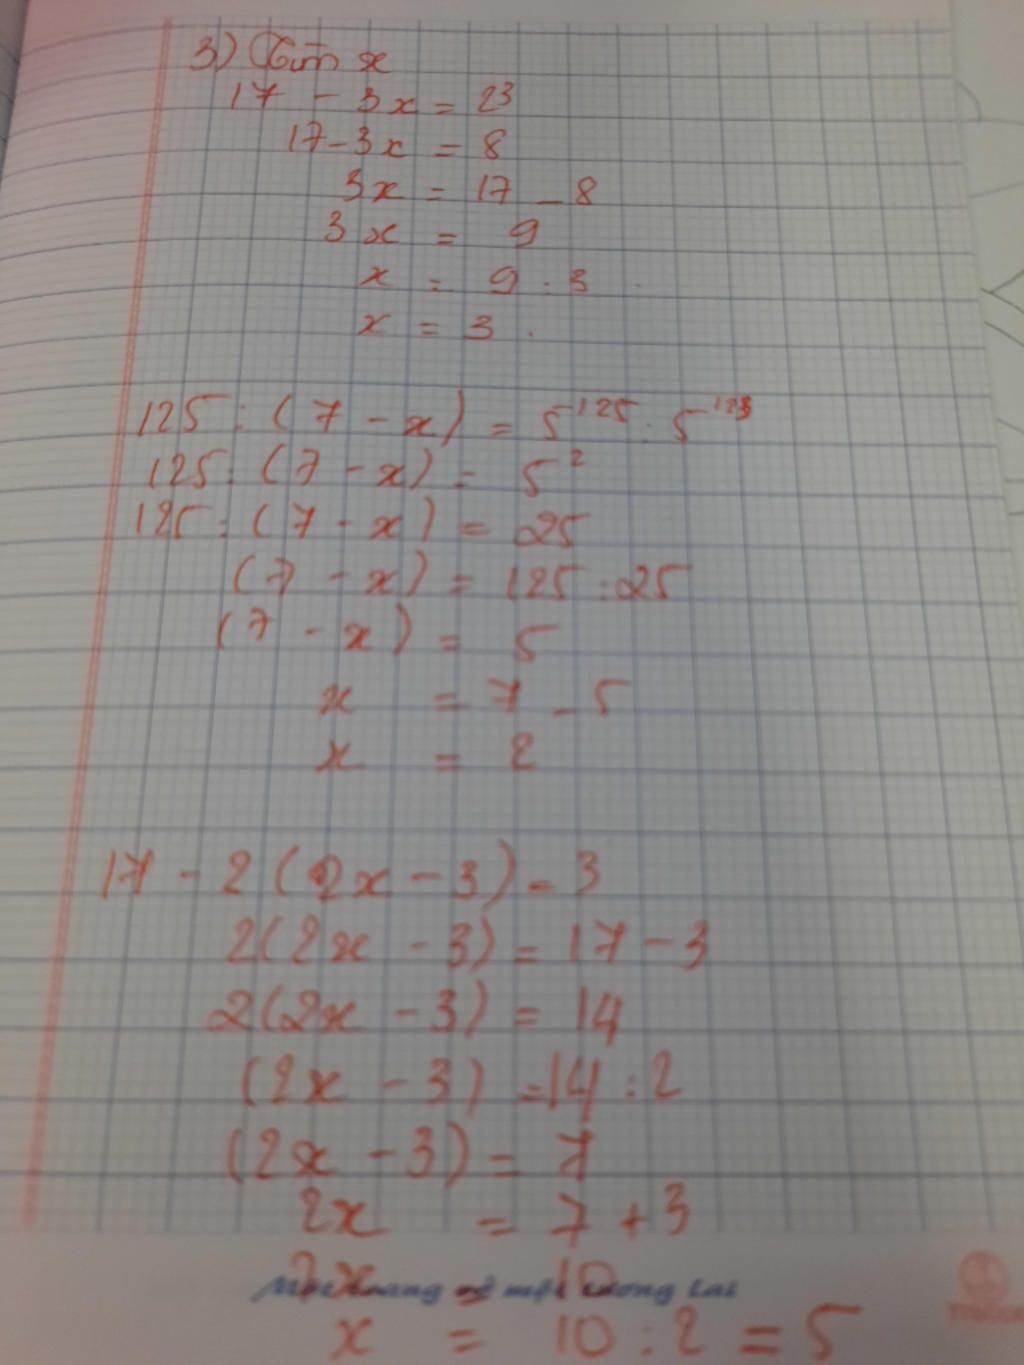 3) Tìm x
17 - 3x = 2³
17 - 3x = 8
3x = 17 - 8
3x = 9
x = 9 : 3
x = 3.
125 : (7 - x) = 5¹²⁵ : 5¹²³
125 : (7 - x) = 5²
125 : (7 - x) = 25
(7 - x) = 125 : 25
(7 - x) = 5
x = 7 - 5
x = 2
17 - 2(2x - 3) = 3
2(2x - 3) = 17 - 3
2(2x - 3) = 14
(2x - 3) = 14 : 2
(2x - 3) = 7
2x = 7 + 3
2x = 10
Mỗi trang vở một tương lai
x = 10 : 2 = 5